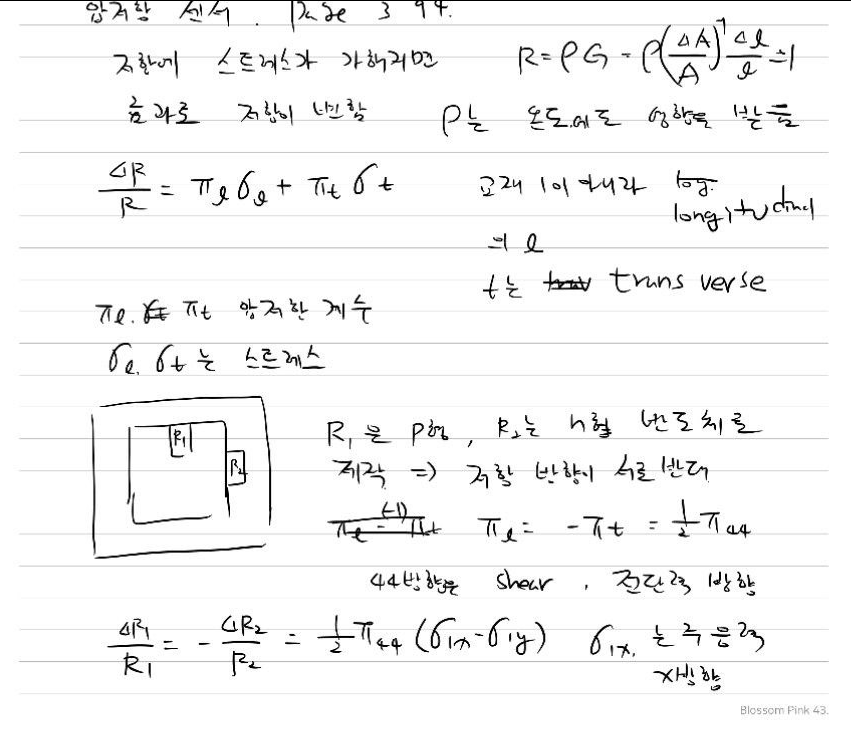 압저항 센서. Page 394.
저항에 스트레스가 가해지면 R = ρG = ρ(ΔA/A)⁻¹ Δl/l 의
효과로 저항이 변함 ρ는 온도에도 영향을 받음
ΔR/R = π_l σ_l + π_t σ_t 교재 1이 아니라 log.
longitudinal
의 l
t는 trans verse
π_l. π_t 압저항 계수
σ_l. σ_t는 스트레스
R₁
R₂
R₁은 P형, R₂는 n형 반도체로
제작 => 저항 방향이 서로 반대
(-1)
π_l - π_t π_l = -π_t = 1/2 π₄₄
44방향은 shear, 전단력 방향
ΔR₁/R₁ = - ΔR₂/R₂ = 1/2 π₄₄ (σ₁ₓ - σ₁y) σ₁ₓ, 는 주응력
x방향
Blossom Pink 43.